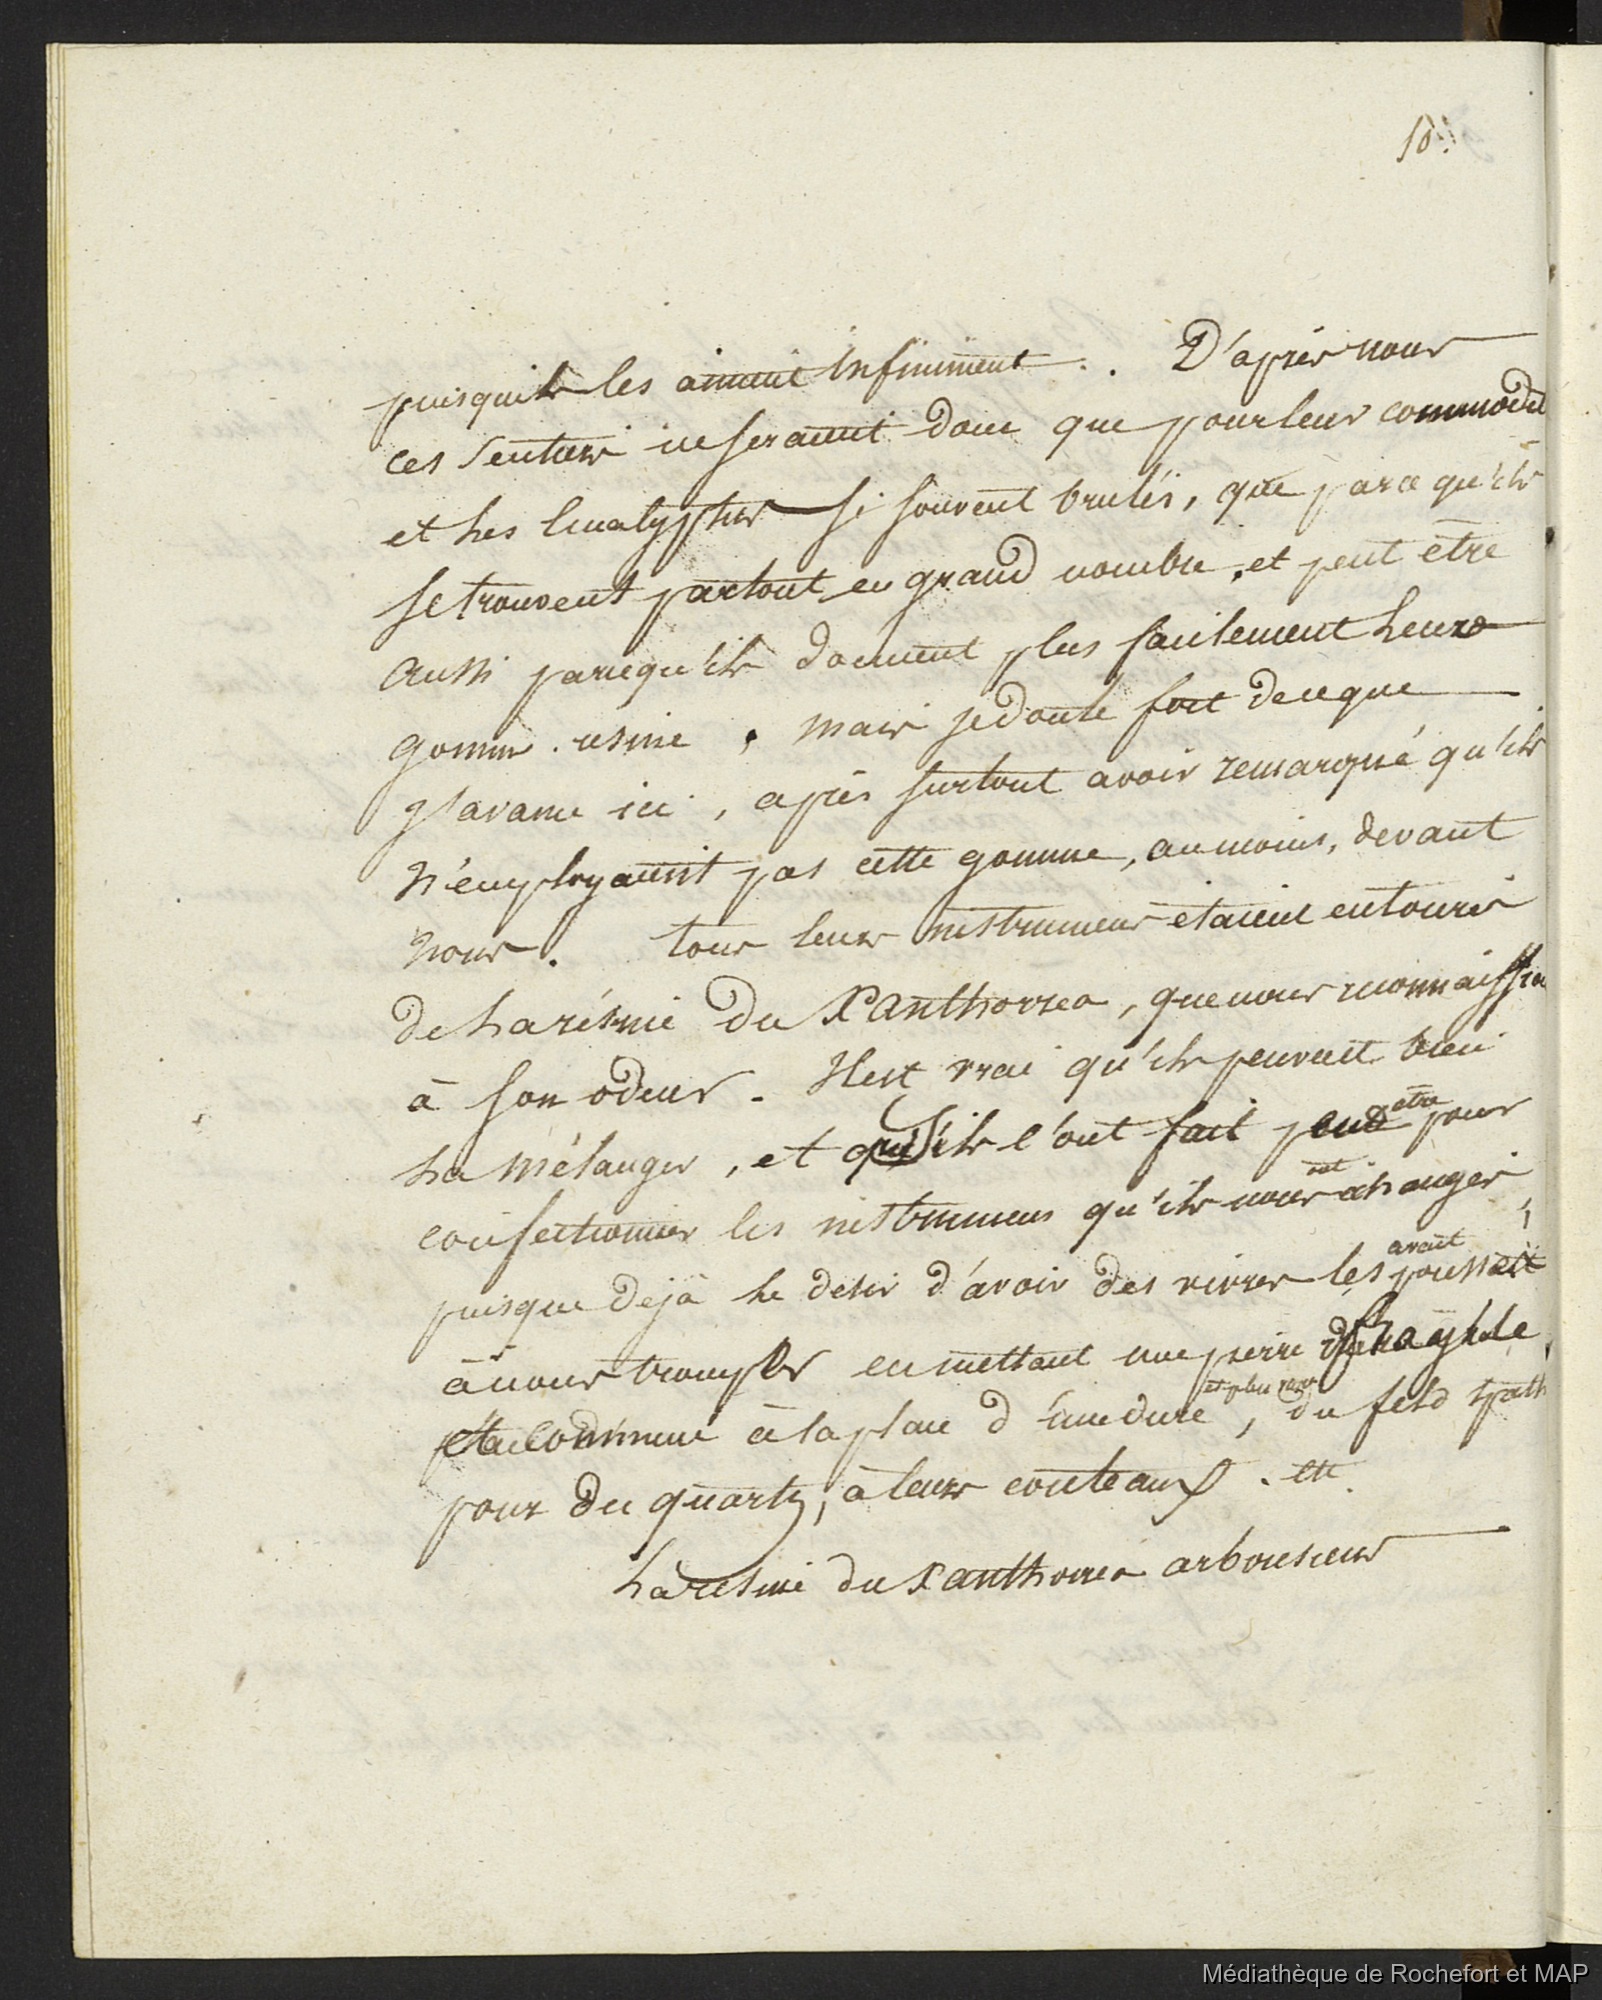 10.
puisquils les aiment infiniment . . D'après nous
ces sentiers ne seraient donc que pour leur commodit
et les Eucalyptus si souvent brulés, que parce qu'ils
se trouvent partout en grand nombre, et peut être
aussi parcequ'ils donnent plus facilement leur
gomme resine . mais je doute fort de ce que
j'avance ici , après surtout avoir remarqué qu'ils
n'employaient pas cette gomme, au moins, devant
nous . tous leurs instrumens étaient entourés
de la résine du Xanthorrea, que nous reconnaission
à son odeur . Il est vrai qu'ils peuvent bien
la mélanger , et qu'ils l'ont fait peut etre pour
confectionner les instrumens qu'ils nous ont échangés ,
puisque dejà le desir d'avoir des vivres les avait poussés
à nous tromper en mettant une pierre fragile
et commune à la place d'une dure et plus rare, du feld spath
pour du quartz, à leurs couteaux . etc
La resine du Xanthorrea arborescens
Médiathèque de Rochefort et MAP